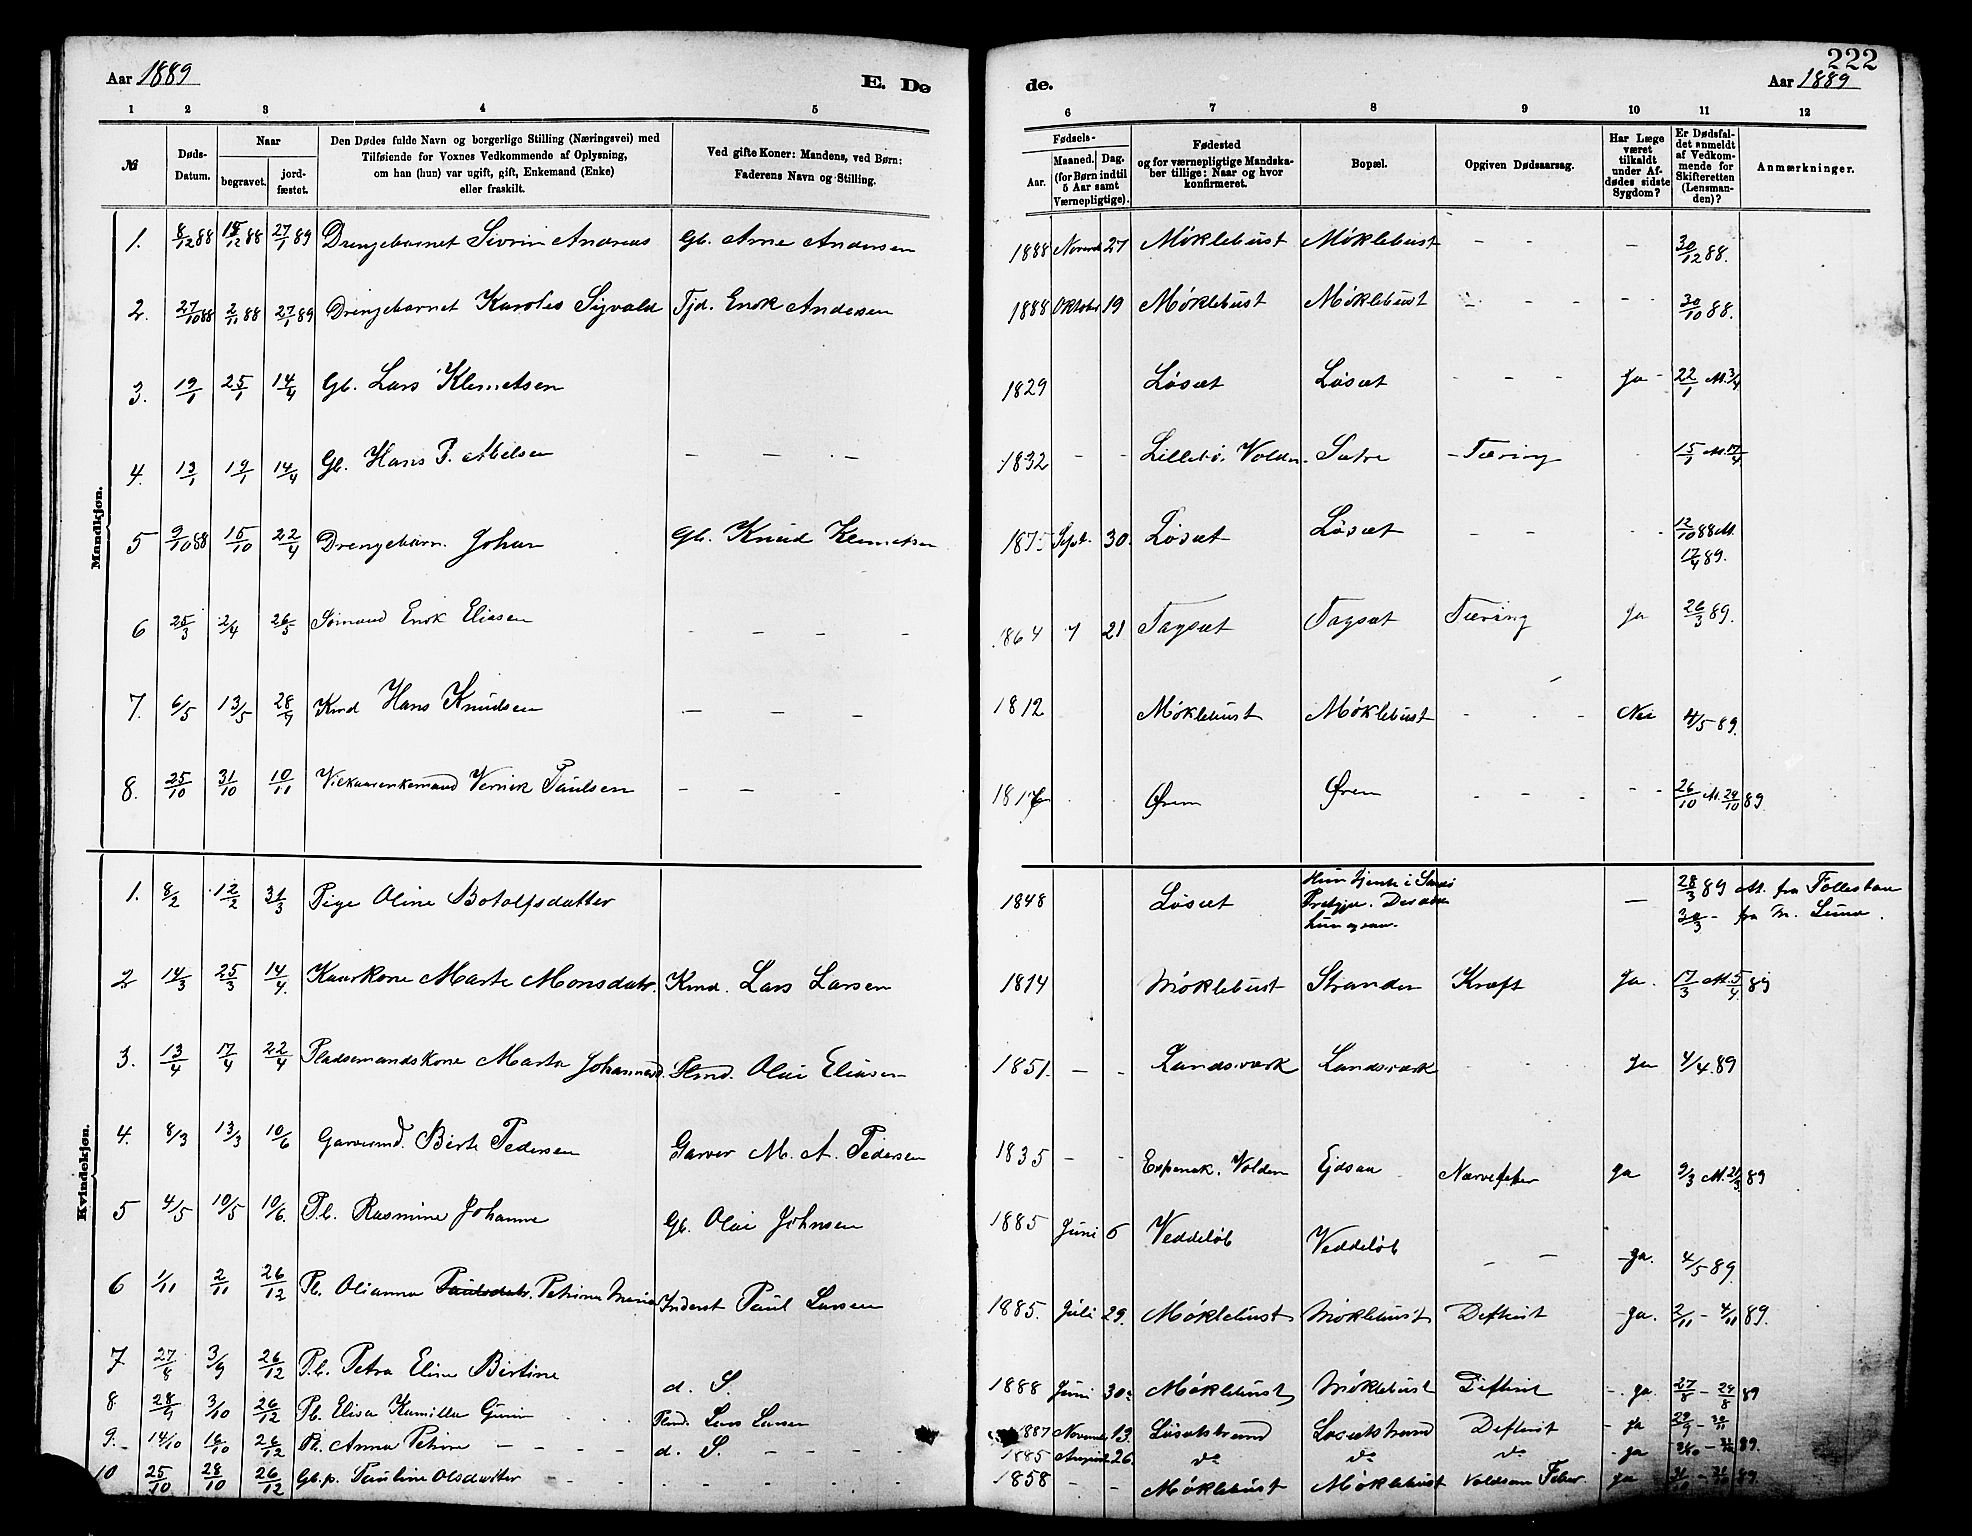 222
Aar 1889 E. De
de. Aar 1889
1 2 3 4 5
6 7 8 9 10 11 12
№
Døds-Datum.
Naar
begravet. jordfæstet.
Den Dødes fulde Navn og borgerlige Stilling (Næringsvei) med
Tilføiende for Voxnes Vedkommende af Oplysning,
om han (hun) var ugift, gift, Enkemand (Enke)
eller fraskilt.
Ved gifte Koner: Mandens, ved Børn:
Faderens Navn og Stilling.
Fødsels-
Aar. Maaned. Dag.
(for Børn indtil
5 Aar samt
Værnepligtige).
Fødested
og for værnepligtige Mandska-
ber tillige: Naar og hvor
konfirmeret.
Bopæl.
Opgiven Dødsaarsag.
Har Læge
været
tilkaldt
under Af-
dødes sidste
Sygdom?
Er Dødsfal-
det anmeldt
af Vedkom-
mende for
Skifteretten
(Lensman-
den)?
Anmærkninger.
Mandkjøn.
1. 8/12 88 15/12 88 27/1 89 Drengebarnet Sivrin Andreas Gb. Arne Andersen 1888 Novemb 27 Møklebust Møklebust - - - 30/12 88.
2. 27/10 88 2/11 88 27/1 89 Drengebarnet Karoles Sigvald Tjd. Enok Andersen 1888 Oktober 19 Møklebust Møklebust - - - - - 30/10 88.
3. 19/1 25/1 14/4 Gb. Lars Klemetsen 1829 Løsæt Løsæt - - - Ja - 22/1 M. 3/4
4. 13/1 19/1 14/4 Gb. Hans P. Abelsen - - - 1832 - - Lillebø, Volden Sætre - Tæring 15/1 M. 17/4
5 9/10 88 15/10 22/4 Drengebarn Johan Gb. Knud Klemetsen 1875 Sept. 30. Løsæt Løsæt - - - - 12/10 88 M.
17/4 89.
6 25/3 2/4 26/5 Sømand Enok Eliasen - - - - 1864 7 21 Tagsæt Tagsæt Tæring Ja 26/3 89.
7. 6/5 13/5 28/9 Kmd Hans Knudsen - - - 1812 Møklebust Møklebust - - - Nei 4/5 89.
8. 25/10 31/10 10/11 Vilkaarenkemand Vernik Paulsen - - - Ørem Ørem - - - - - 26/10 M. 29/10 89
Kvindekjøn.
1. 8/2 12/2 31/3 Pige Oline Botolfsdatter 1848 Løsæt Hun tjente i Sandø
Prestgjæ. Der døde
hun ogsaa. — 28/3 89 M. fra
30/3 - fra
2 14/3 25/3 14/4. Kaarkone Marte Monsdatr. Kmd. Lars Larsen 1814 Møklebust Stranden Kræft Ja. 17/3 M. 5/4 89
3. 13/4 17/4 22/4 Pladsemandskone Marta Johannesd. Plmd. Olai Eliasen 1851. - - Landsværk Landsværk - - Ja 4/4. 89
4. 8/3 13/3 10/6 Garvermd. Birte Pedersen Garver M. A. Pedersen 1835 - - Espenak. Volden Ejdsaa Nærvefeber Ja 9/3 M. 21/3. 89
5 4/5 10/5 10/6. Pb. Rasmine Johanne Gb. Olai Johnsen 1885 Juni 6 Veddeløb Veddeløb - - - Ja. 4/5 89.
6 1/11 2/11 26/12 Pb. Olianna Paulsdatr. Petrina Maria Inderst Paul Larsen 1885. Juli 29. Møklebust Møklebust Diftirit - Ja. 2/11 - 4/11 89.
7 27/8 3/9 26/12 P.b. Petra Eline Birtine d. S. 1888 Juni 30. Møklebust Møklebust Diftirit - Ja. 27/8 - 29/8 89
8 28/9 3/10 26/12 Pb. Elisa Kamilla Gurin Plmd. Lars Larsen 1887 Novemb. 13. Løsætstrand Løsætstrand Diftirit - Ja
9. 14/10 16/10 26/12 Pb. Anna Petrine - - - - d. S. - - - - 1885 August 26. do do do - Ja 89.
10 25/10 28/10 26/12 Gb.p. Pauline Olsdatter - - - - - - 1858 - - Møklebust Møklebust Voldsom Feber Ja 89.